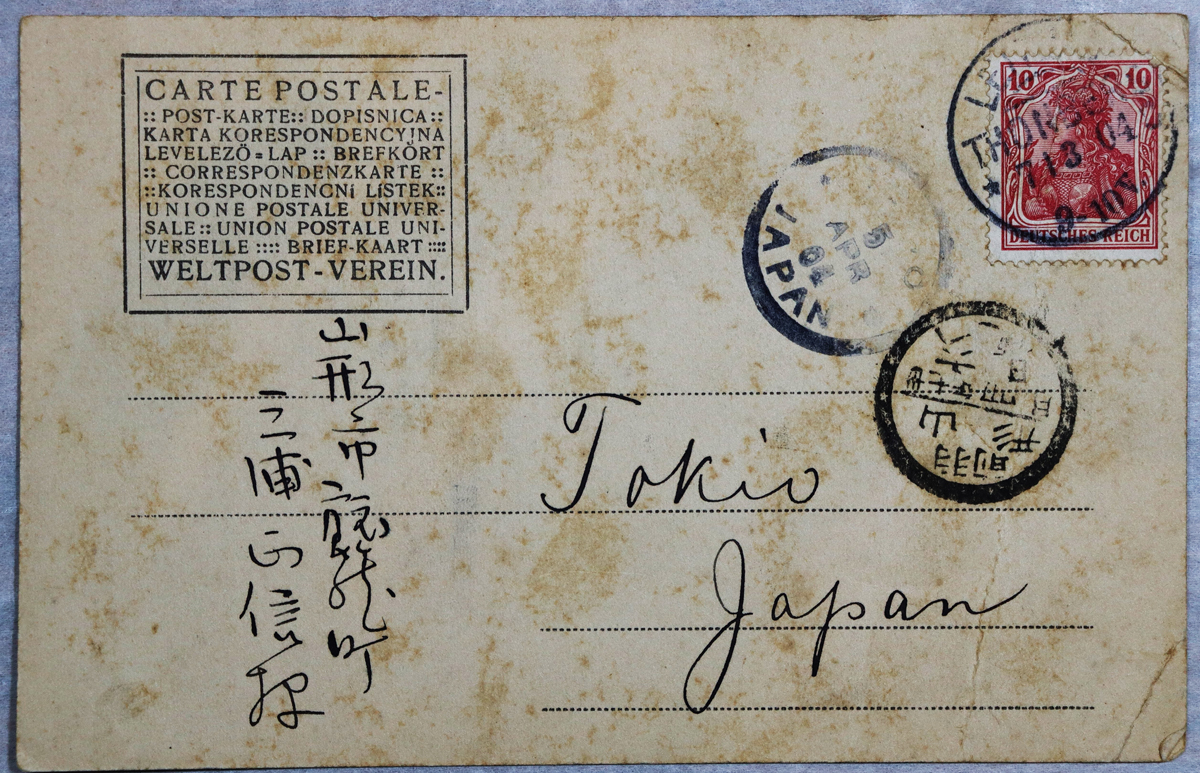 CARTE POSTALE-
:: POST-KARTE:: DOPISNICA ::
KARTA KORESPONDENCYJNA
LEVELEZŐ=LAP :: BREFKORT
:: CORRESPONDENZKARTE ::
::KORESPONDENCNí LíSTEK::
UNIONE POSTALE UNIVER-
SALE :: UNION POSTALE UNI-
VERSELLE :::: BRIEF-KAART ::::
WELTPOST-VEREIN.
10 10
DEUTSCHES REICH
04
9-10V.
5
APR
04
JAPAN
山形市
町
三浦正信
Tokio
Japan